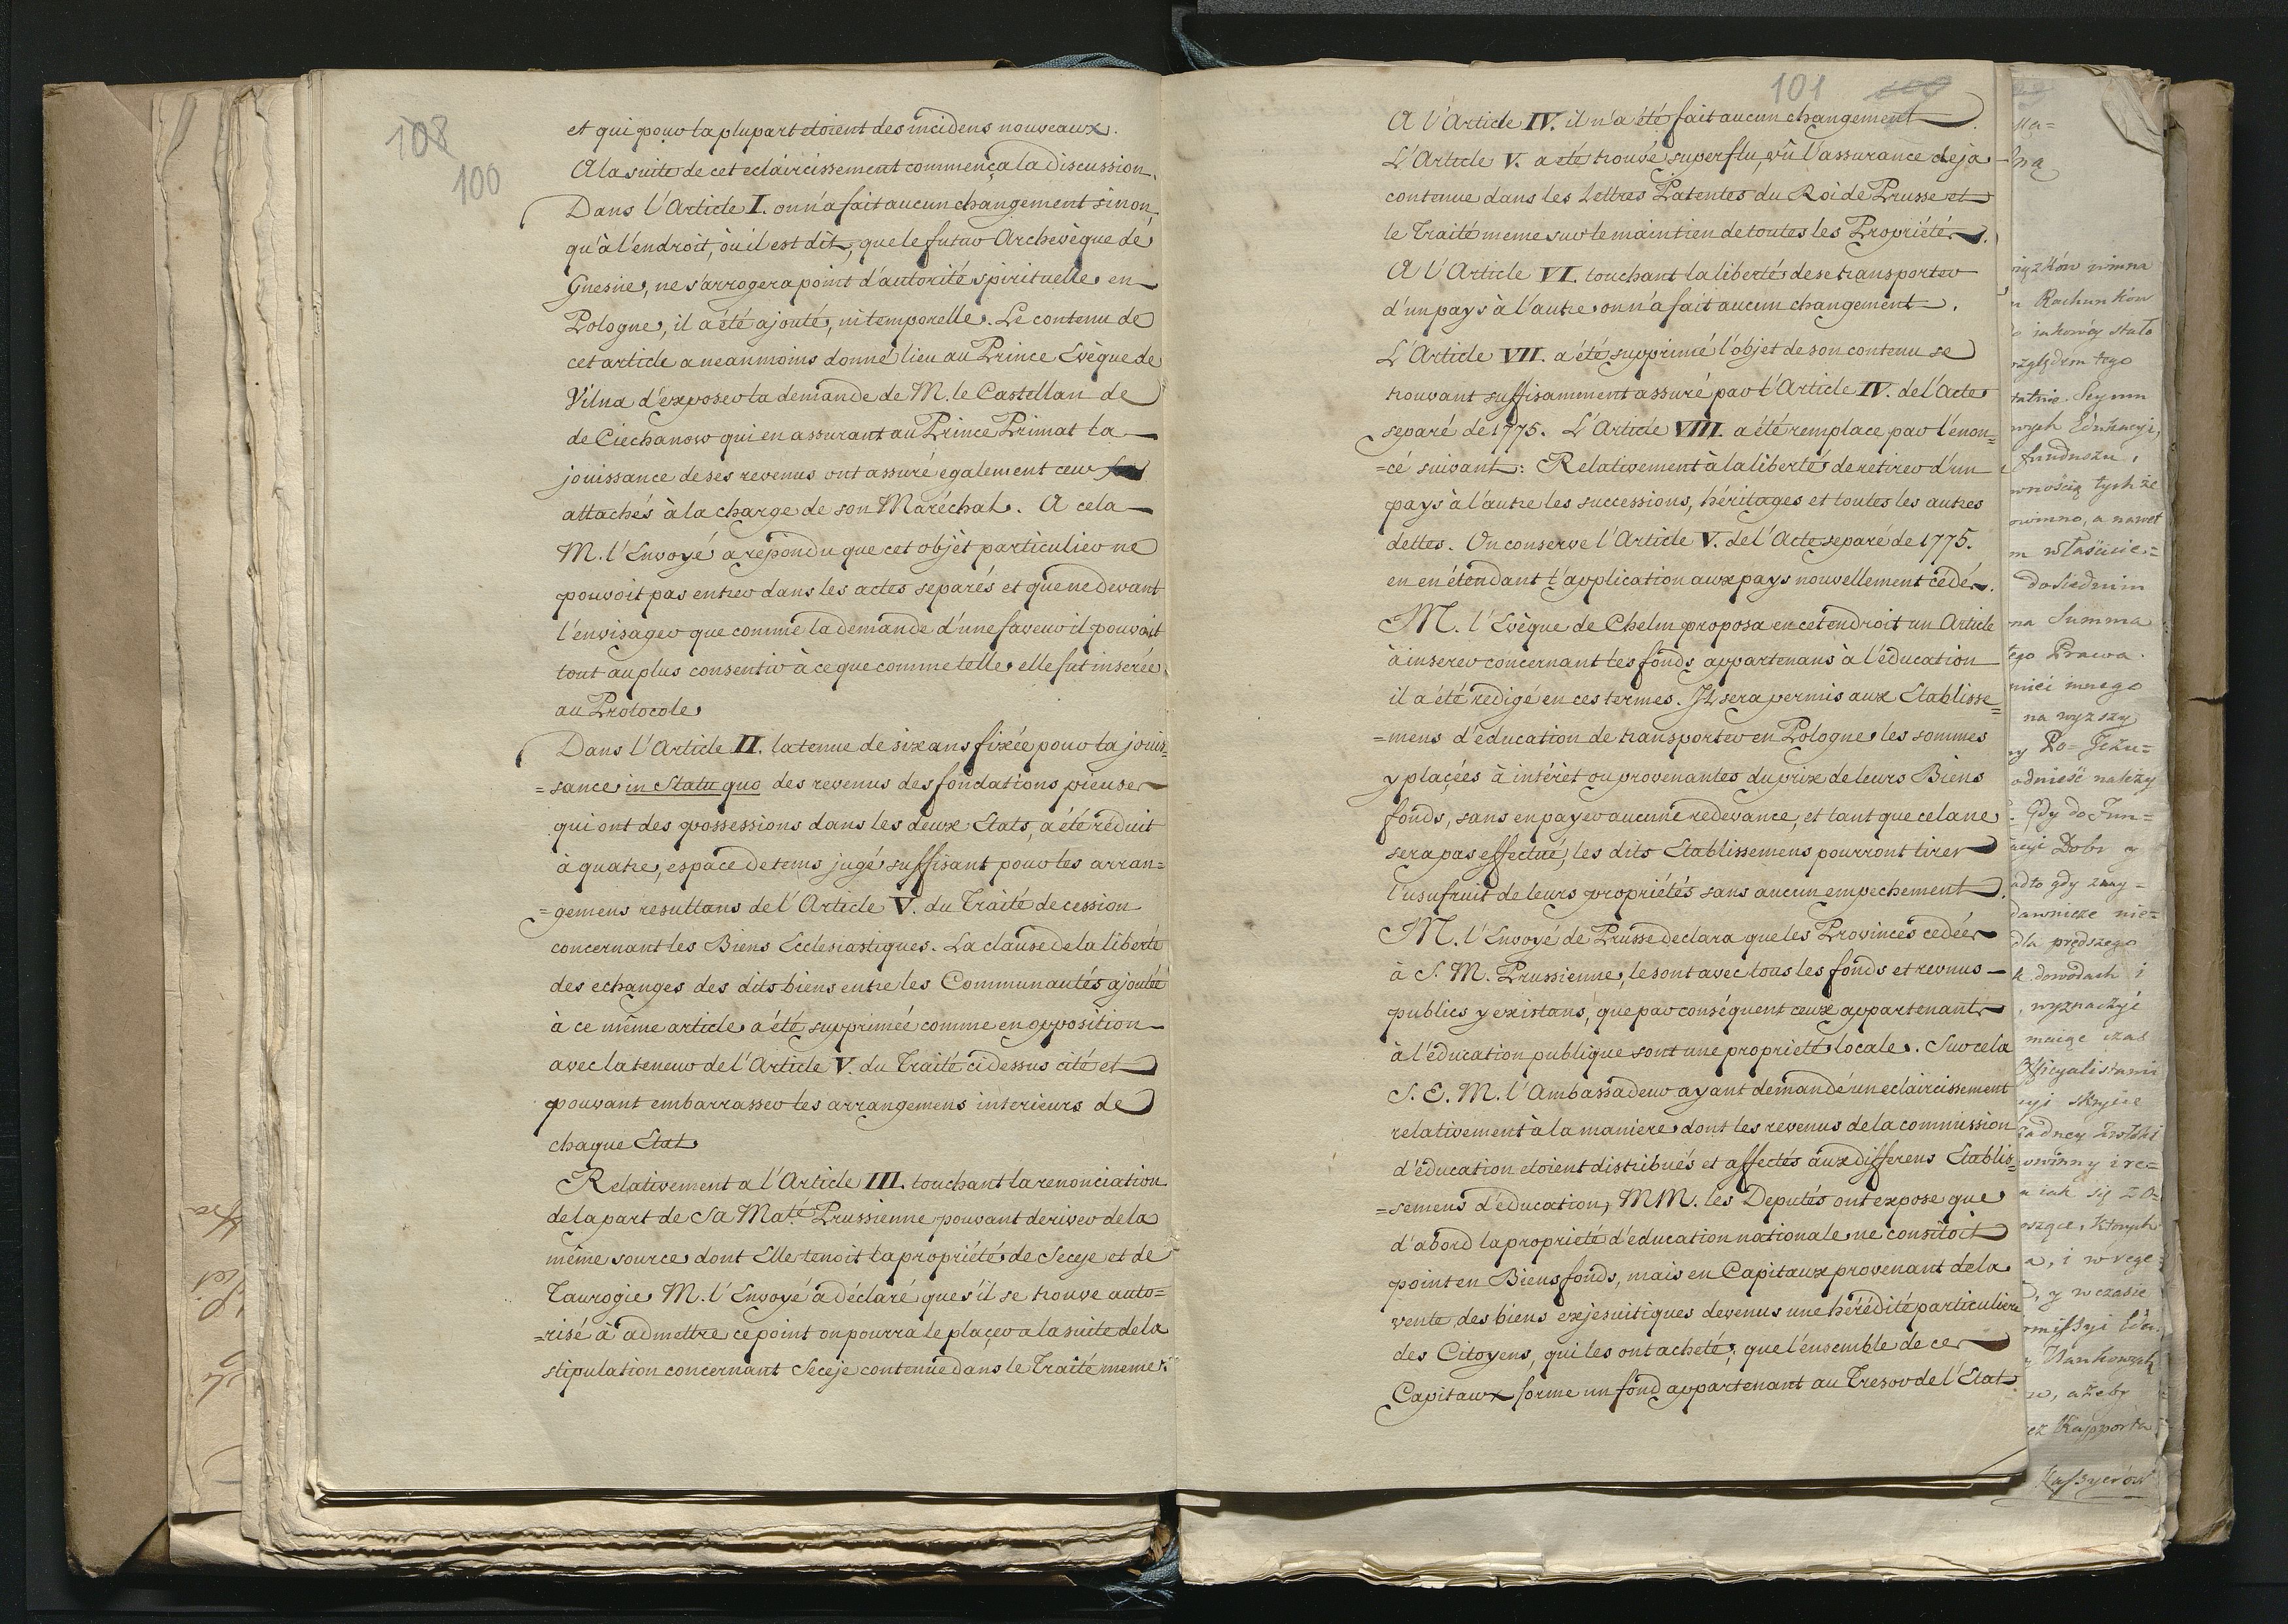 108
100
et qui pour la plupart etoient des incidens nouveaux.
A la suite de cet eclaircissement commença la discussion.
Dans l'Article I. on n'a fait aucun changement sinon,
qu'à l'endroit, òu il est dit, que le futur Archevèque de
Gnesne, ne s'arrogera point d'autorité spirituelle en
Pologne, il a été ajouté, ni temporelle. Le contenu de
cet article a neanmoins donné lieu au Prince Evèque de
Vilna d'exposer la demande de M. le Castellan de
de Ciechanow qui en assurant au Prince Primat la
jouissance de ses revenus ont assuré egalement ceux
attachés à la charge de son Maréchal. A cela
M. l'Envoyé a répondu que cet objet particulier ne
pouvoit pas entrer dans les actes separés et que ne devant
l'envisager que comme la demande d'une faveur il pouvoit
tout au plus consentir à ce que comme telle elle fut inserée
au Protocole
Dans l'Article II. la tenue de six ans fixée pour la jouis=
=sance in Statu quo des revenus des fondations pieuses
qui ont des possessions dans les deux Etats, a été réduit
à quatre, espace de tems jugé suffisant pour les arran=
=gemens resultans de l'Article V. du Traité de cession
concernant les Biens Ecclesiastiques. La clause de la liberté
des echanges des dits biens entre les Communautés ajoutée
à ce même article a été supprimée comme en opposition
avec la teneur de l'Article V. du Traité ci dessus cité et
pouvant embarrasser les arrangemens interieurs de
chaque Etat
Relativement a l'Article III. touchant la renonciation
de la part de Sa Maté. Prussienne pouvant deriver de la
même source dont Elle tenoit la propriété de Seceje et de
Taurogie M. l'Envoyé a déclaré que s'il se trouve auto=
=risé à admettre ce point on pourra le plaçer a la suite de la
stipulation concernant Seceje contenue dans le Traité meme.
101
A l'Article IV. il n'a été fait aucun changement.
L'Article V. a été trouvé superflu, vû l'assurance deja
contenue dans les Lettres Patentes du Roi de Prusse et
le Traité meme sur le maintien de toutes les Propriétés.
A l'Article VI. touchant la liberté de se transporter
d'un pays à l'autre on n'a fait aucun changement.
L'Article VII. a été supprimé l'objet de son contenu se
trouvant suffisamment assuré par l'Article IV. de l'Acte
separé de 1775. L'Article VIII. a été remplace par l'enon=
=cé suivant: Relativement à la liberté de retirer d'un
pays à l'autre les successions, héritages et toutes les autres
dettes. On conserve l'Article V. de l'Acte separé de 1775.
en en étendant l'application aux pays nouvellement cédés.
M. l'Evèque de Chelm proposa en cet endroit un Article
à inserer concernant les fonds appartenans à l'éducation
il a été redigé en ces termes. Il sera permis aux Etablisse=
=mens d'éducation de transporter en Pologne les sommes
y plaçées à intérèt ou provenantes du prix de leurs Biens
fonds, sans en payer aucune redevance, et tant que cela ne
sera pas effectué, les dits Etablissemens pourront tirer
l'usufruit de leurs propriétés sans aucun empechement.
M. l'Envoyé de Prusse declara que les Provinces cedées
à S. M. Prussienne, le sont avec tous les fonds et revnus
publics y existans, que par conséquent ceux appartenants
à l'éducation publique sont une proprieté locale. Sur cela
S. E. M. l'Ambassadeur ayant demandé un eclaircissement
relativement à la maniere dont les revenus de la commission
d'éducation etoient distribués et affectés aux differens Etablis=
=semens d'éducation, MM. les Deputés ont expose que
d'abord la proprieté d'éducation nationale ne consitoit
point en Biens fonds, mais en Capitaux provenant de la
vente des biens exjesuitiques devenus une hérédité particuliere
des Citoyens, qui les ont acheté; que l'ensemble de ces
Capitaux forme un fond appartenant au Tresor de l'Etat
Rachunków
stało
względem tego
Seymu
Edukacyi,
funduszu,
tychże
a nawet
Summa
Prawa.
innego
na wyższy
należy
Gdy do Fun=
Dobr y
gdy znay=
dla prędszego
dowodach i
wyznaczyć
czas
skrycie
i re=
iak się
Których
y w czasie
ażeby
Kassyerów